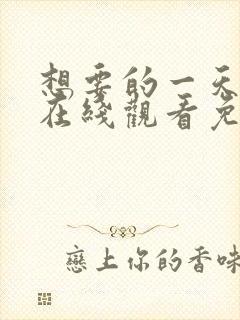 想要的一天
在綫觀看免
戀上你的香味